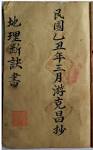 民國乙丑年三月游克昌抄
地理斷訣書